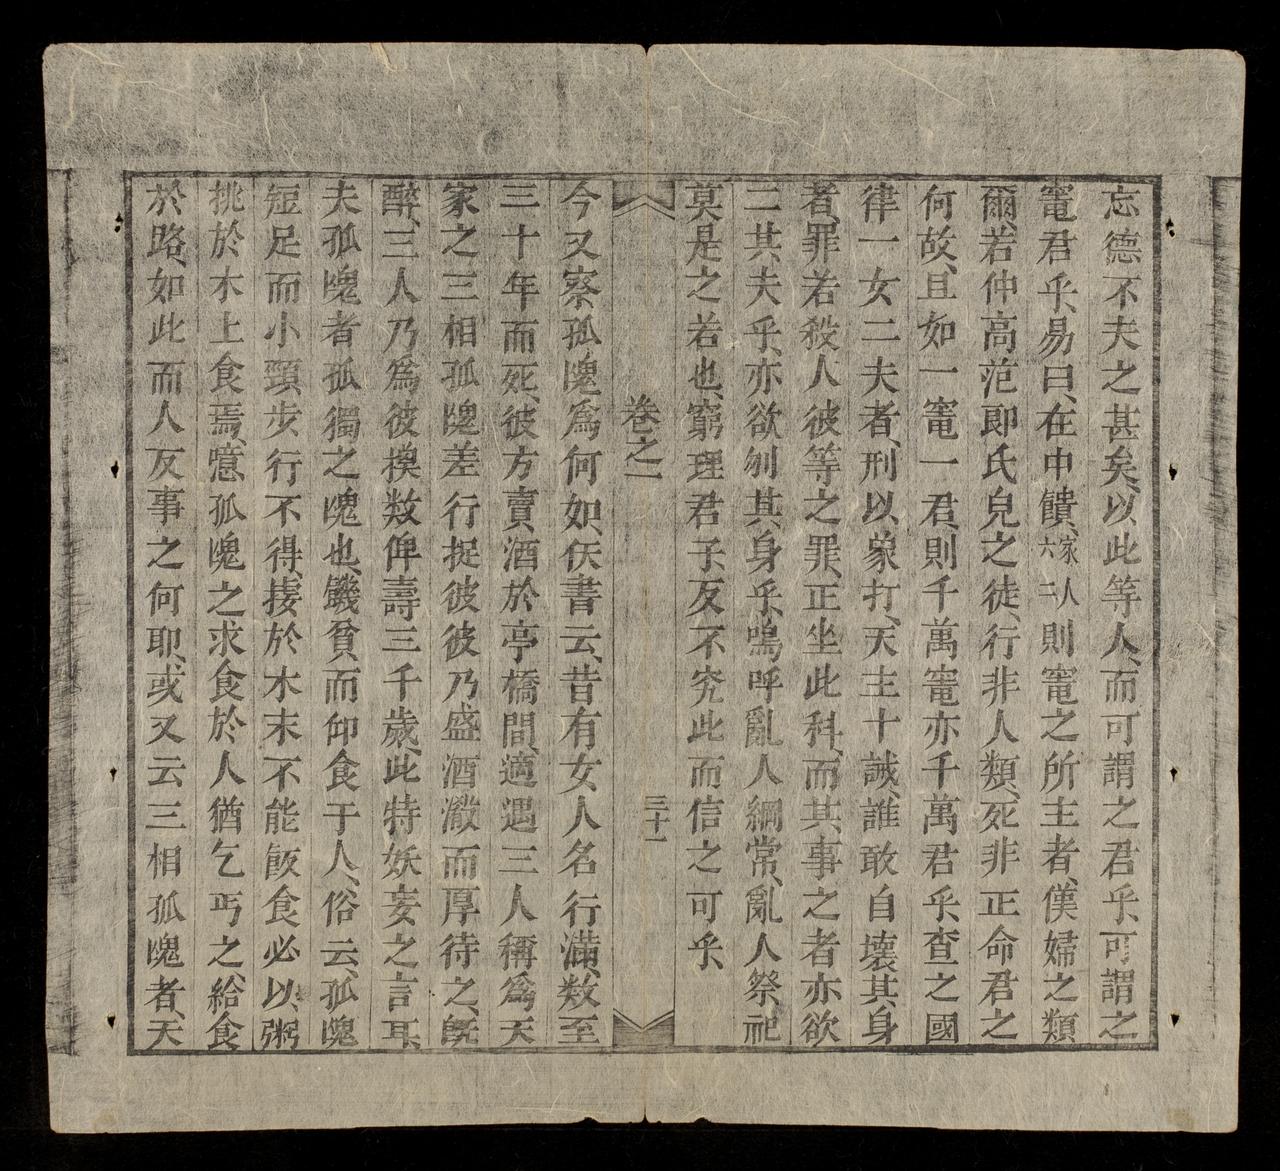 忘德不夫之甚矣、以此等人、而可謂之君乎、可謂之
竈君乎、易曰、在中饋、家人六二則竈之所主者、僕婦之類
爾、若仲高范郎氏兒之徒、行非人類、死非正命、君之
何故、且如一竈一君、則千萬竈亦千萬君乎、查之國
律一女二夫者、刑以象打、天主十誡、誰敢自壞其身
者、罪若殺人、彼等之罪、正坐此科、而其事之者亦欲
二其夫乎、亦欲刎其身乎、嗚呼亂人綱常、亂人祭祀
莫是之若也、窮理君子、反不究此而信之可乎、
卷之一
三十一
今又察、孤魄爲何如、仸書云、昔有女人名行滿、数至
三十年而死、彼方賣酒於亭橋間、適遇三人稱爲天
家之三相孤魄差行捉彼彼乃盛酒澂而厚待之、既
醉、三人乃爲彼摸数俾壽三千歲、此特妖妄之言耳、
夫孤魄者孤獨之魄也、饑貧而仰食于人、俗云、孤魄
短足而小頸、步行不得、捿於木末不能飯食必以粥
挑於木上食焉、噫孤魄之求食於人猶乞丐之給食
於路、如此而人反事之何耶、或又云三相孤魄者、天